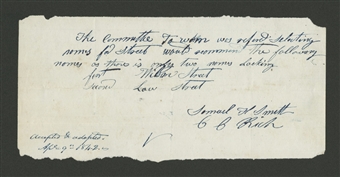 The Committe To whom was refered selecting
names for Street would recommend the following
names as there is only two names lacking
first Street
Second Law Street
Samuel H Smith
C C Rich
Accepted & adopted
Apr. 9th 1842